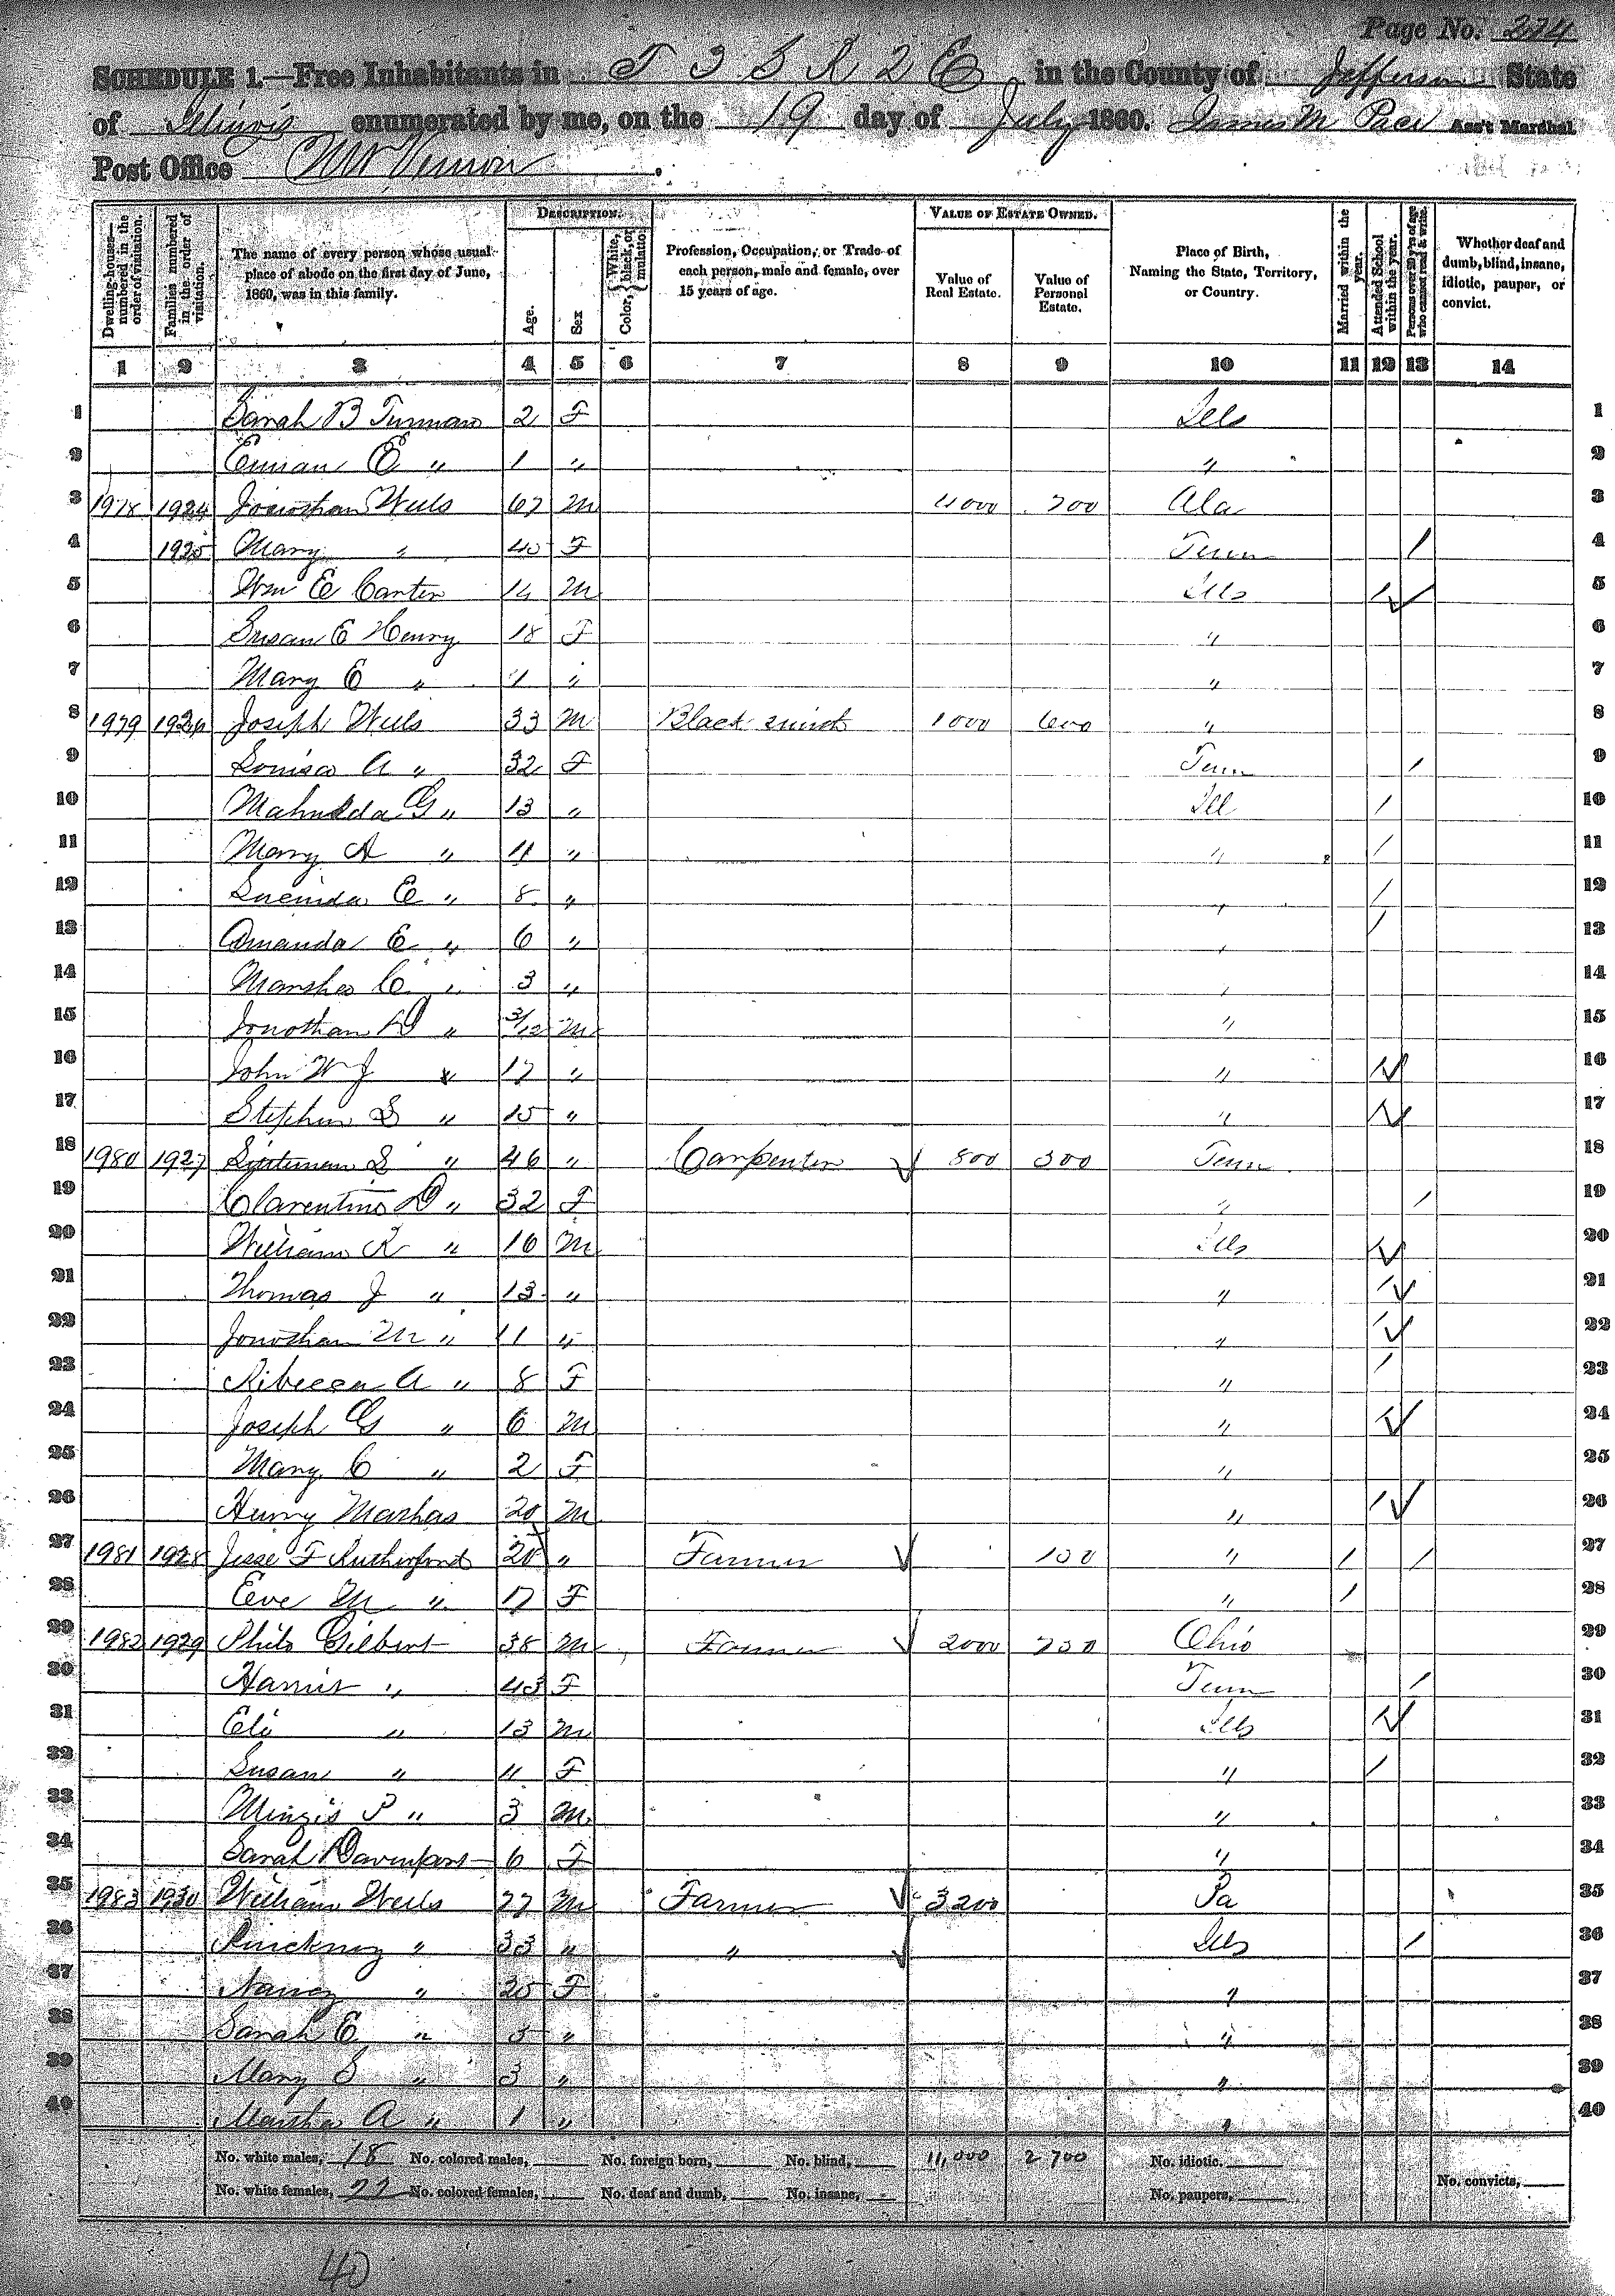 Page No. 224
SCHEDULE 1.—Free Inhabitants in T 3 S R 2 E in the County of Jefferson State
of Illinois enumerated by me, on the 19 day of July 1860. James M Pace Ass't Marshal.
Post Office Mt Vernon.
Dwelling-houses—numbered in the order of visitation. Families numbered in the order of visitation. The name of every person whose usual place of abode on the first day of June, 1860, was in this family. DESCRIPTION. Age. Sex Color, {White, black, or mulatto. Profession, Occupation, or Trade of each person, male and female, over 15 years of age. VALUE OF ESTATE OWNED. Value of Real Estate. Value of Personal Estate. Place of Birth, Naming the State, Territory, or Country. Married within the year. Attended School within the year. Persons over 20 y'rs of age who cannot read & write. Whether deaf and dumb, blind, insane, idiotic, pauper, or convict.
1 2 3 4 5 6 7 8 9 10 11 12 13 14
1 Sarah B 2 F Ills 1
2 E " 1 " " 2
3 1978 1924 Jonothan Wells 67 M 4000 700 Ala 3
4 1925 Mary " 40 F Tenn / 4
5 Wm E Carter 14 M Ills / 5
6 Susan E Henry 18 F " 6
7 Mary E " 1 " " 7
8 1979 1926 Joseph Wells 33 M Black smith 1000 600 " 8
9 Louisa A " 32 F Tenn / 9
10 G " 13 " Ill / 10
11 Mary A " 11 " " / 11
12 Lucinda E " 8 " " / 12
13 Amanda E " 6 " " / 13
14 Marsha C " 3 " " 14
15 Jonothan D " 3/12 M " 15
16 John W J " 17 " " / 16
17 Stephen S " 15 " " / 17
18 1980 1927 S " 46 " Carpenter 800 300 Tenn 18
19 Clarentine D " 32 F " / 19
20 William R " 16 M Ills / 20
21 Thomas J " 13 " " / 21
22 Jonothan M " 11 " " / 22
23 Rebecca A " 8 F " / 23
24 Joseph G " 6 M " / 24
25 Mary C " 2 F " 25
26 Henry 20 M " / 26
27 1981 1928 Jesse F Rutherford 20 " Farmer 100 " / / 27
28 Eve M " 17 F " / 28
29 1982 1929 Philo Gilbert 38 M Farmer 2000 700 Ohio 29
30 Harriet " 43 F Tenn / 30
31 Eli " 13 M Ills / 31
32 Susan " 11 F " / 32
33 P " 3 M " 33
34 Sarah Davenport 6 F " 34
35 1983 1930 William Wells 77 M Farmer 3200 Pa 35
36 Pinckney " 33 " " Ills / 36
37 Nancy " 25 F " 37
38 Sarah E " 5 " " 38
39 Mary S " 3 " " 39
40 Martha A " 1 " " 40
No. white males, 18 No. colored males, No. foreign born, No. blind, 11,000 2700 No. idiotic.
No. white females, 22 No. colored females, No. deaf and dumb, No. insane, No. paupers, No. convicts,
40